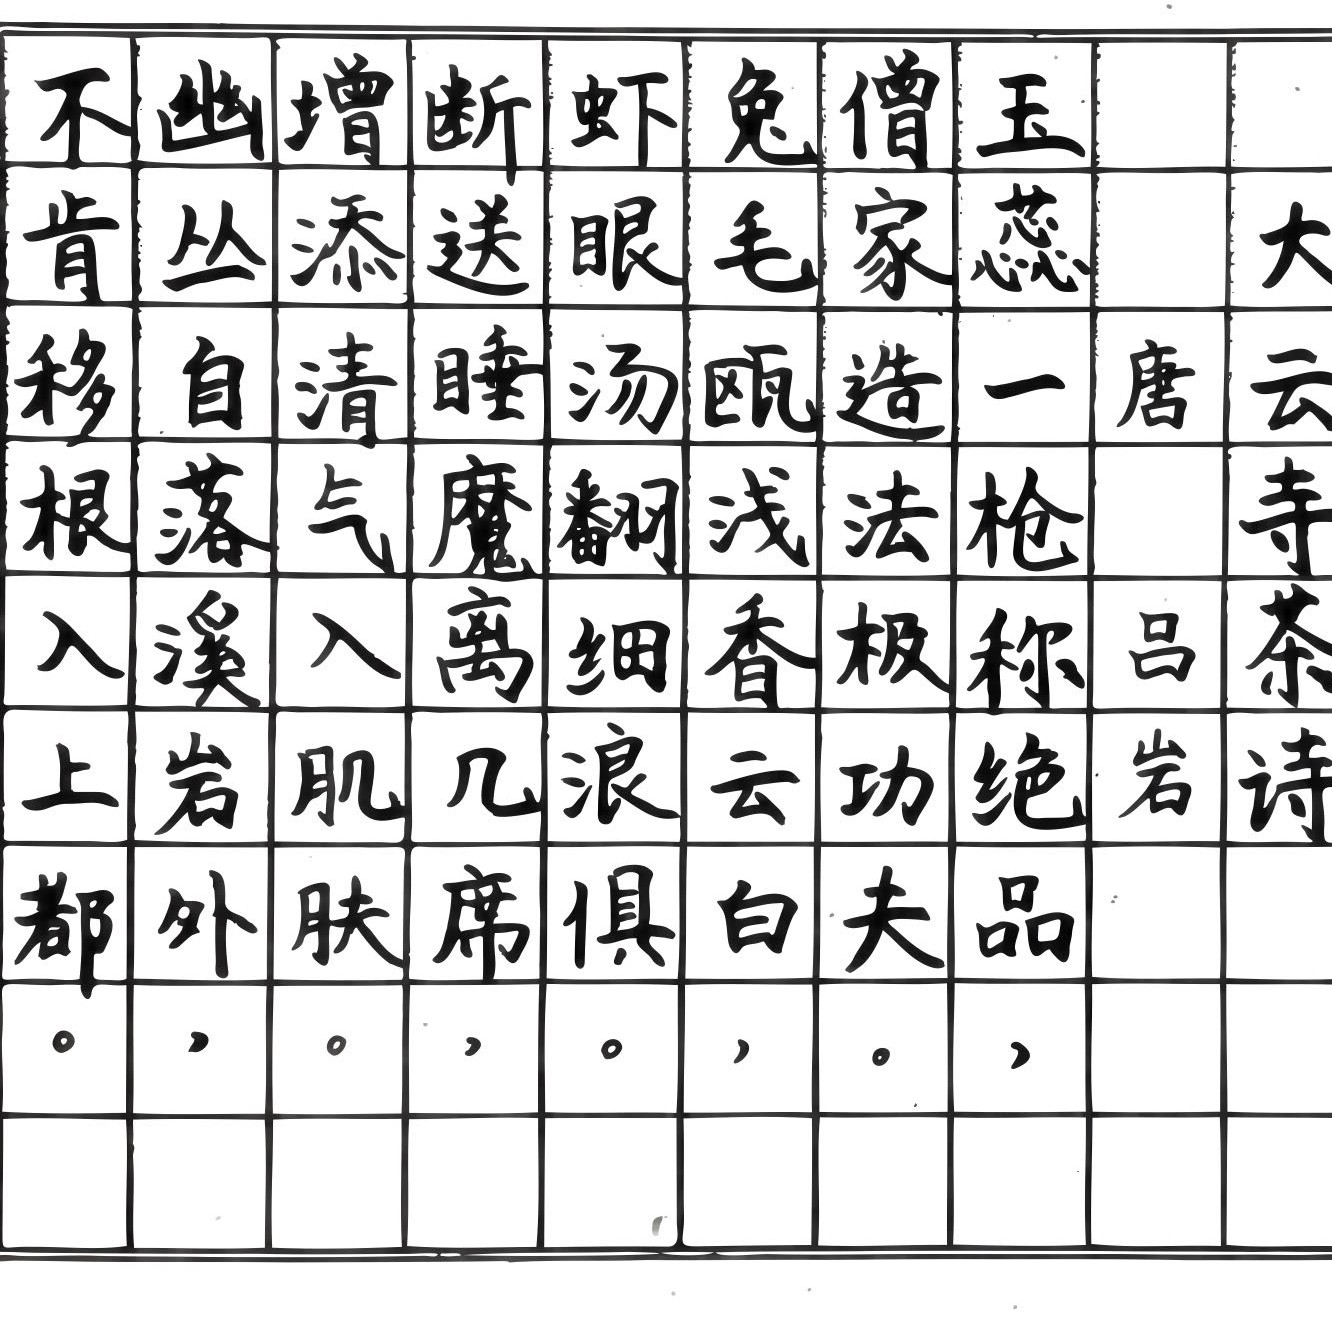 大云寺茶诗
唐 吕岩
玉蕊一枪称绝品，
僧家造法极功夫。
兔毛瓯浅香云白，
虾眼汤翻细浪俱。
断送睡魔离几席，
增添清气入肌肤。
幽丛自落溪岩外，
不肯移根入上都。